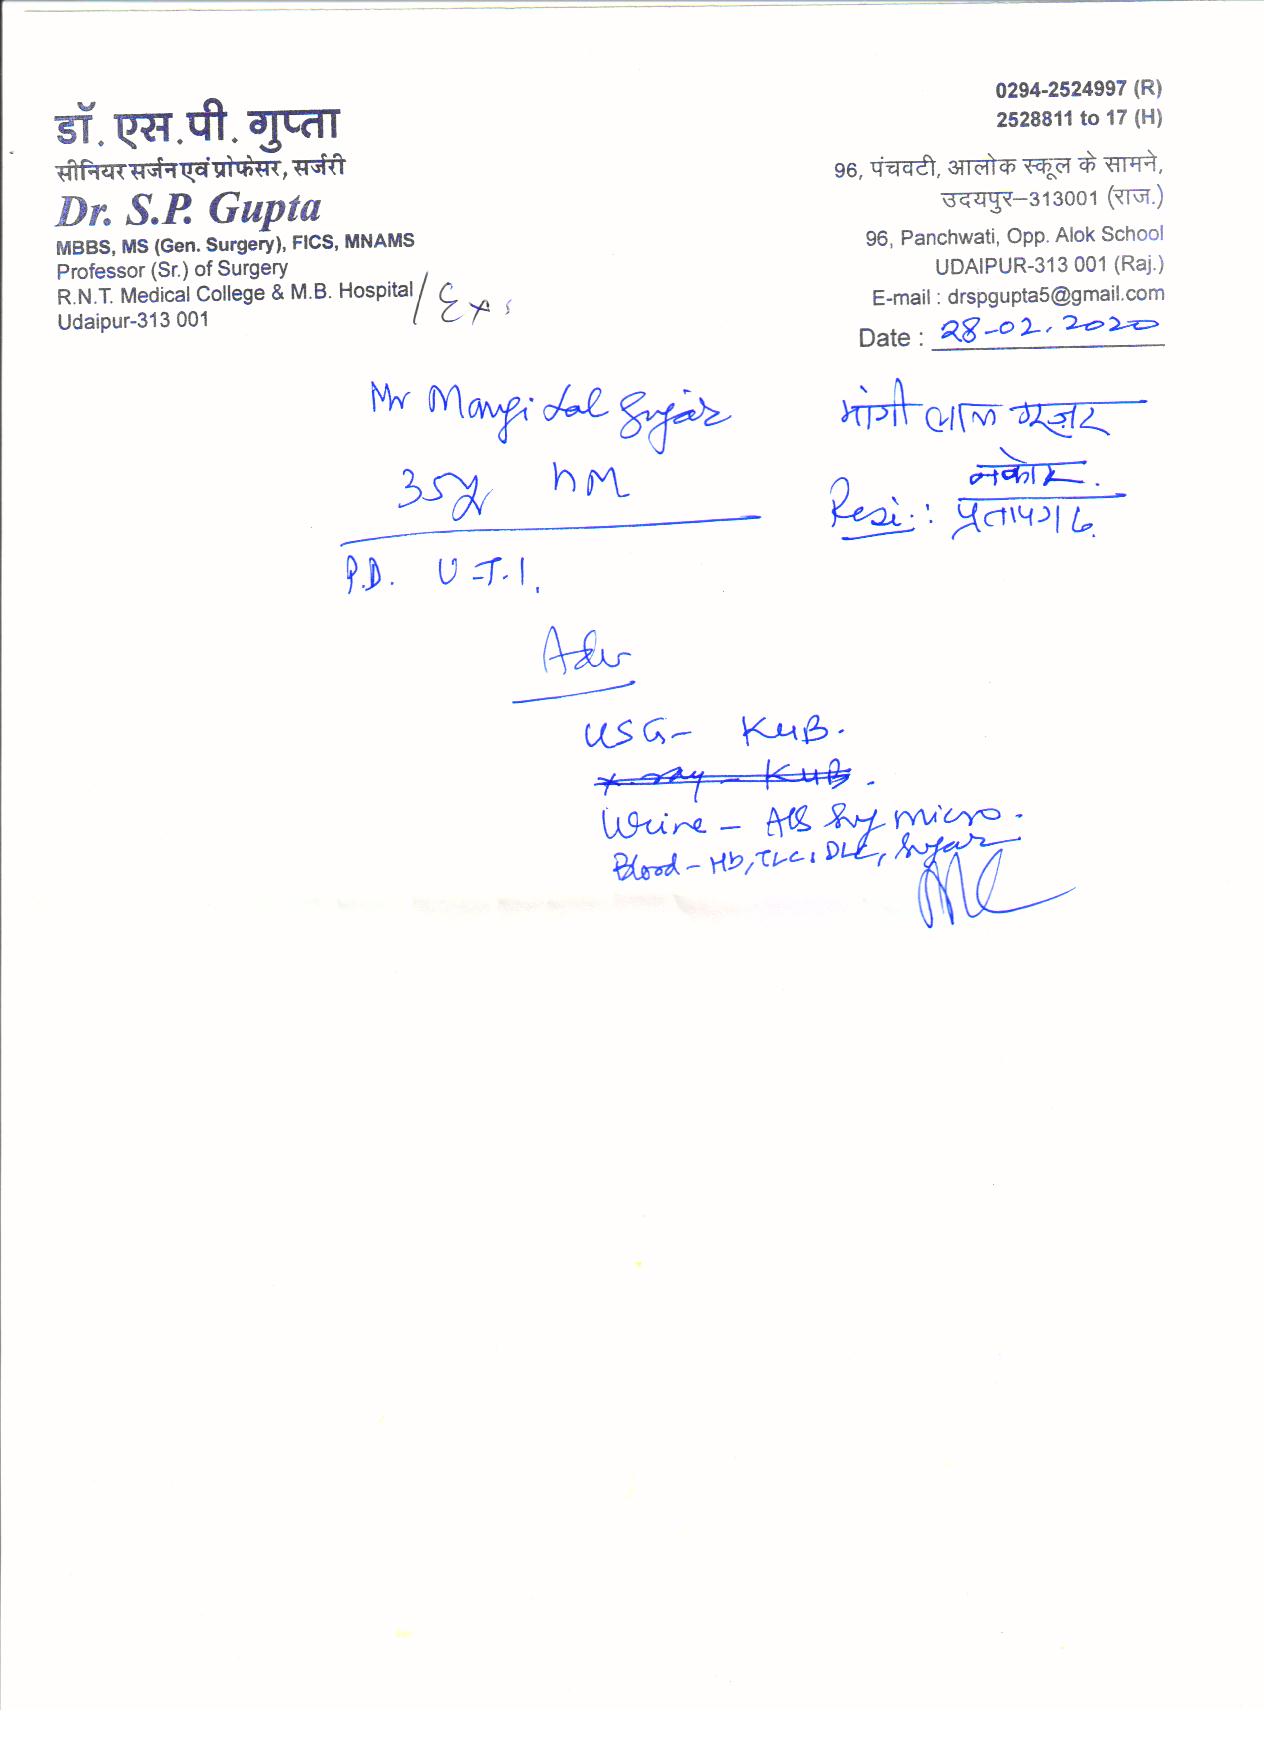 डॉ. एस.पी. गुप्ता
सीनियर सर्जन एवं प्रोफेसर, सर्जरी
Dr. S.P. Gupta
MBBS, MS (Gen. Surgery), FICS, MNAMS
Professor (Sr.) of Surgery
R.N.T. Medical College & M.B. Hospital / Ex.
Udaipur-313 001
0294-2524997 (R)
2528811 to 17 (H)
96, पंचवटी, आलोक स्कूल के सामने,
उदयपुर–313001 (राज.)
96, Panchwati, Opp. Alok School
UDAIPUR-313 001 (Raj.)
E-mail : drspgupta5@gmail.com
Date : 28-02.2020
Mr Mangi Lal Gujar
मांगी लाल गुज़र
35y
नकोर.
Resi : प्रतापगढ
P.D. U.T.I.
Adv
USG- KUB.
x-ray - KUB.
Urine - Alb Sug micro.
Blood - Hb, TLC, DLC, Sugar